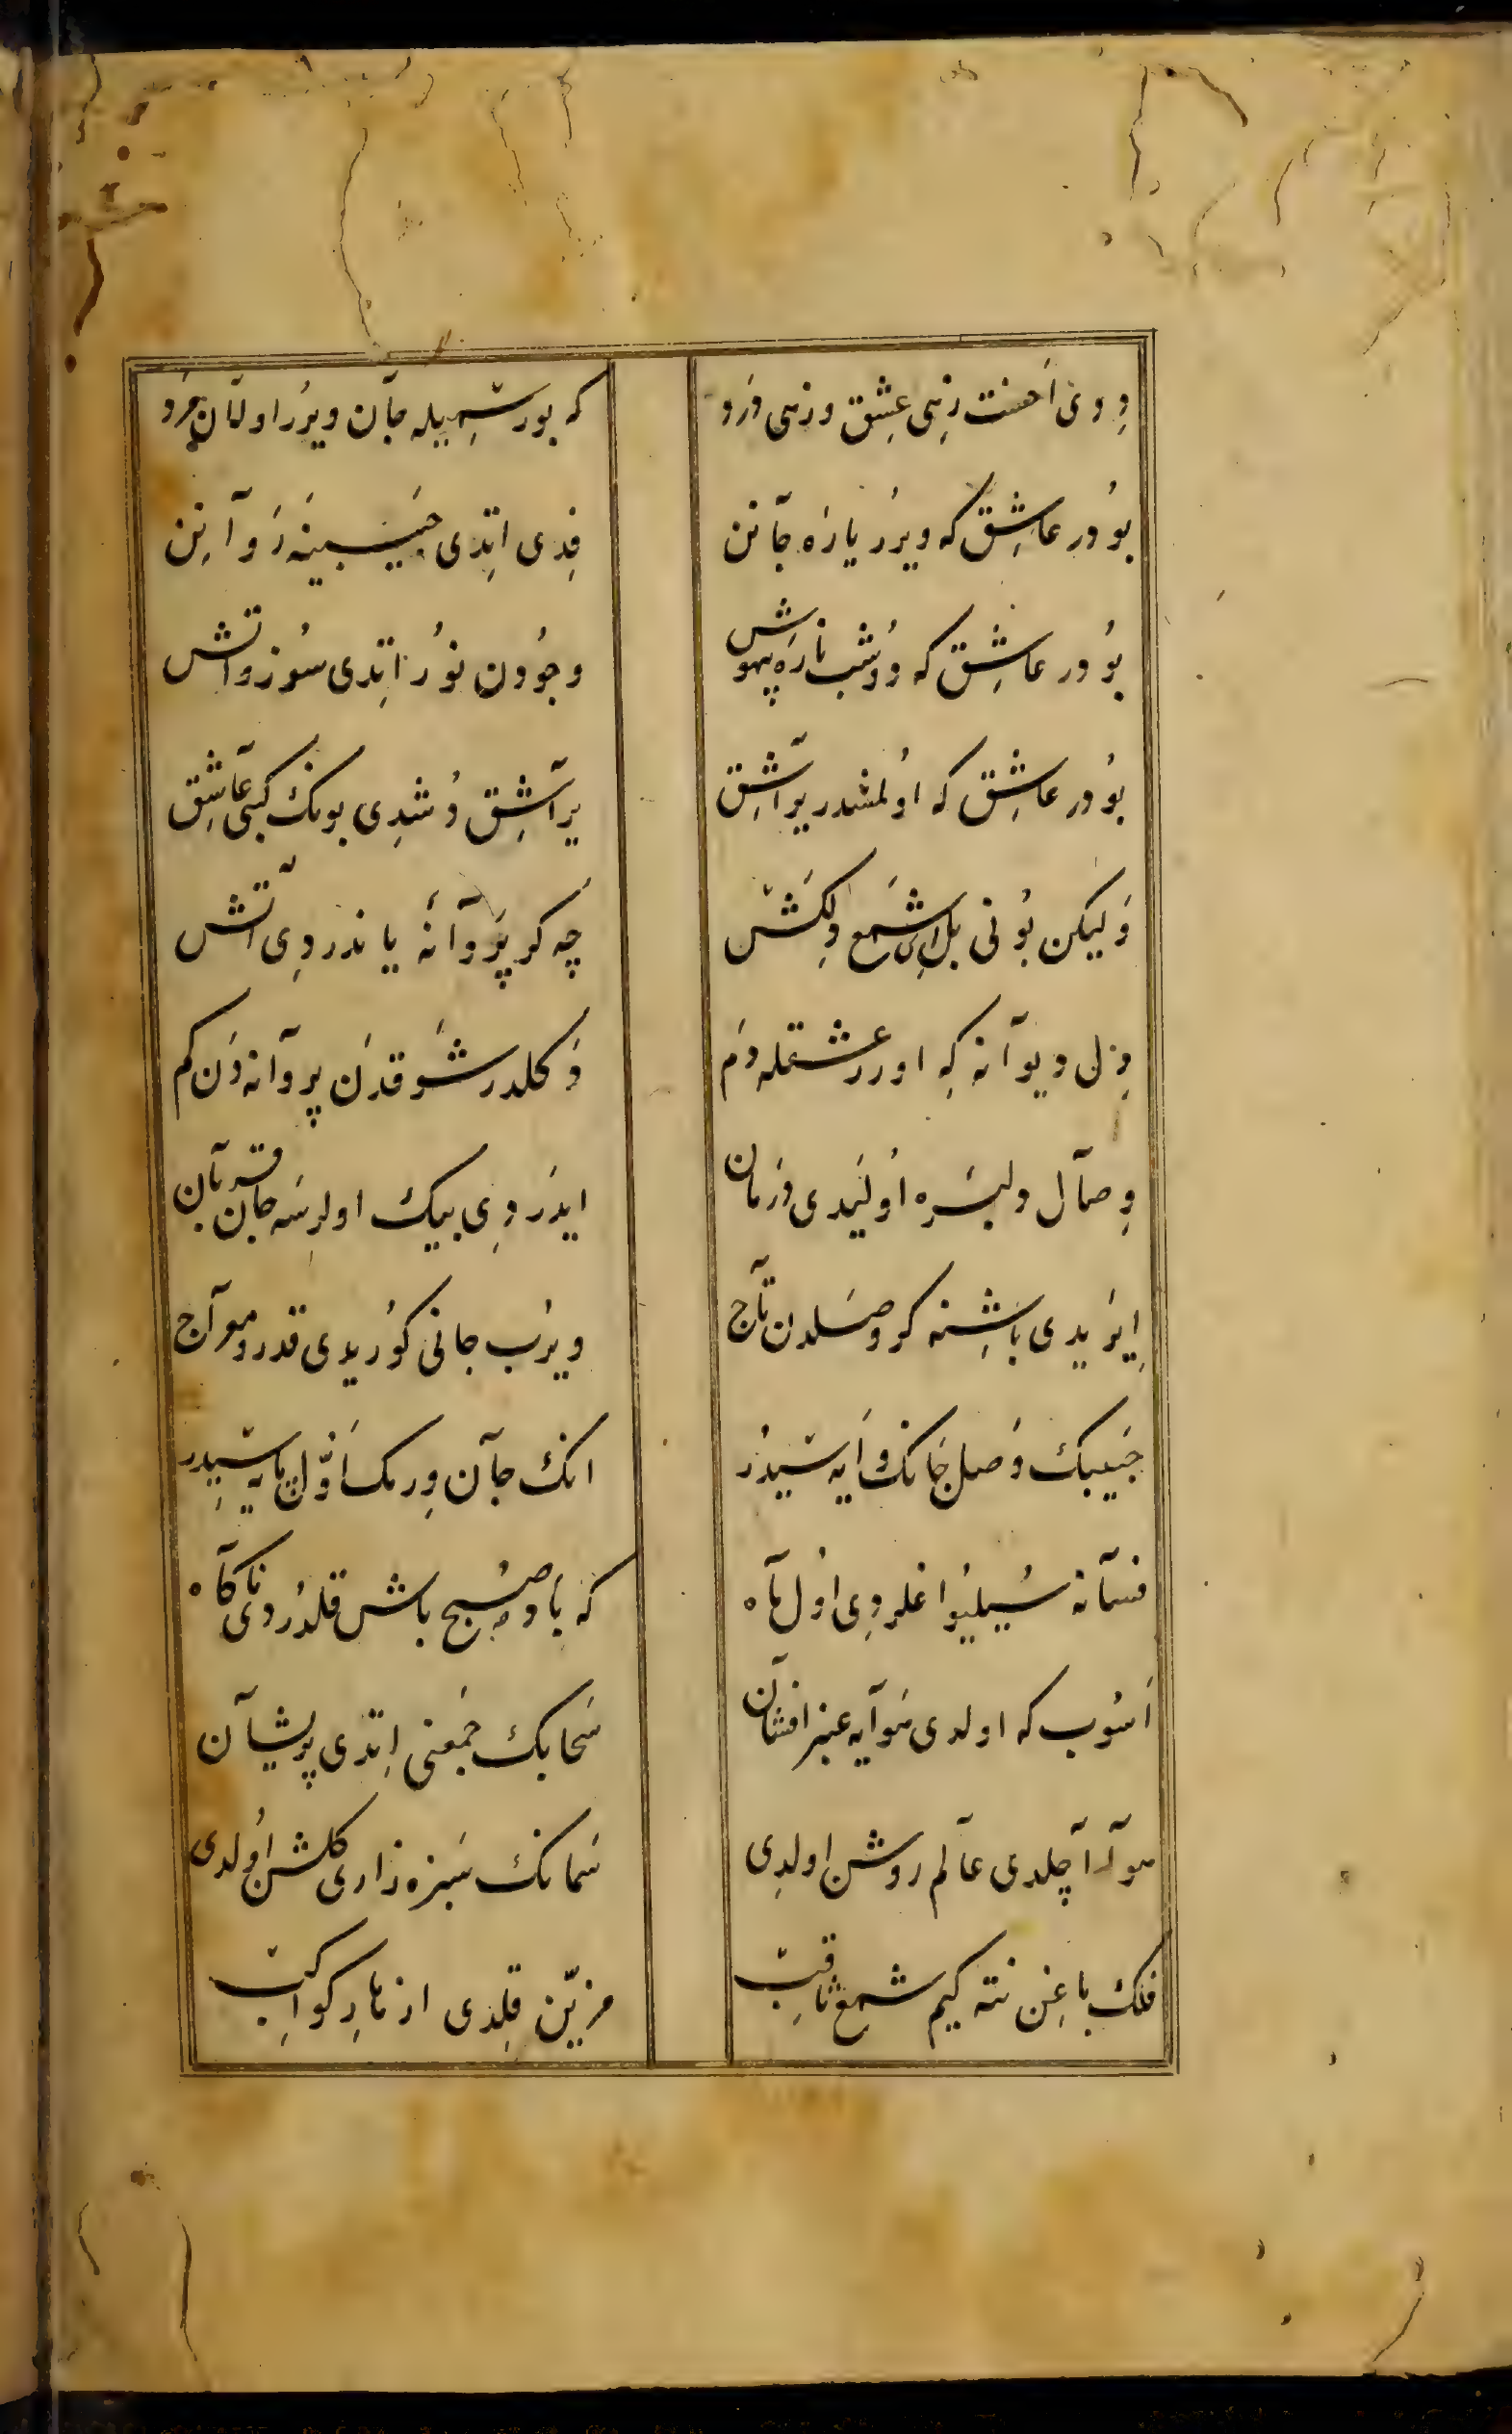 دِدی اَحسَنت زِهی عِشق و زهی دَرد
که بو رسمیله جان ویرُر اولان مَرد
بُودر عاشِق که ویرُر یارَه جانن
فِدی اِتدی حَبیبینه رَوانِن
بُودر عاشِق که دُوشُب نارَه بیهوش
وجُودن نُور اِتدی سُوز و آتش
بُودر عاشِق که اُولمشدر بر آشِق
بر آشِق دُشدِی بونك كبی عاشِق
وَلیکن بُونی بل اِی شَمعِ دِلکَش
چه کر پَروانَه یاندردِی آتش
دِلی دیوانه کِه اورر عشقله دَم
دَکلدر شَوقدَن پروانه دَن کم
وِصال دلبَره اُولَیدی دَرمان
ایدَردِی بیك اولرسَه جان قربان
اِیرَیدی باشِنه کر وصَلدن تاج
ویرُب جانی کُورَیدی قدر و معراج
حَبیبك وَصل جانك وایَه سیدُر
انك جان وِرمك اَوّل پایَه سیدِر
فسانه سُیلیُوا غلردِی اُول ماه
که بادِ صُبح باش قلدُردی ناکاه
اَسُوب که اولدی هَوایه عنبر افشان
سَحابك جَمعنی اِتدی پریشان
هوا آچلدی عالم روشن اولدِی
سَمانك سَبزه زاری کلشن اُولدی
فلك باغِن نته کیم شمع ثاقِب
مزیّن قِلدی ازهارِ کواکِب